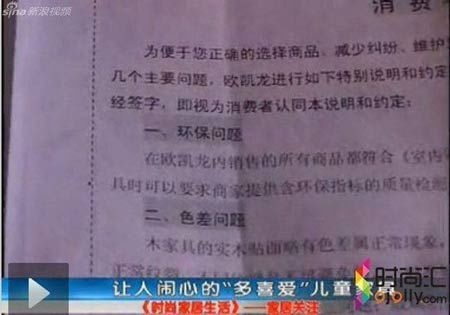 sina新浪视频
消费
为便于您正确的选择商品、减少纠纷、维护
几个主要问题，欧凯龙进行如下特别说明和约定
经签字，即视为消费者认同本说明和约定：
一、环保问题
在欧凯龙内销售的所有商品都符合《室内
具时可以要求商家提供含环保指标的质量检测
二、色差问题
木家具的实木贴面略有色差属正常现象，
正常纹
让人闹心的“多喜爱”儿童家具
《时尚家居生活》——家居关注
时尚汇
olly.com